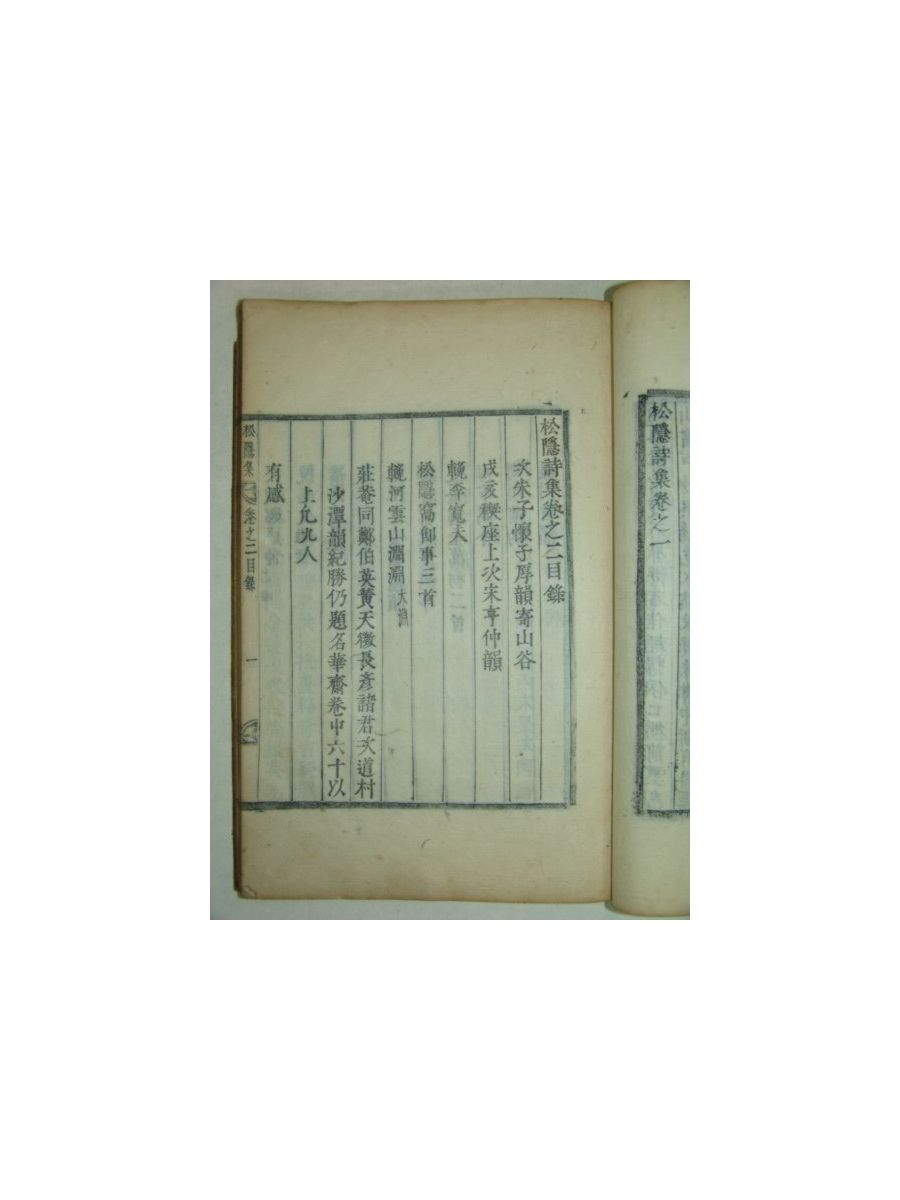 松隱詩集卷之一
松隱詩集卷之二目錄
次朱子懷子厚韻寄山谷
戌亥稧座上次宋亨仲韻
輓李寬夫
松隱窩卽事三首
輓河雲山淵淵
莊菴同鄭伯英黃天徵長彥諸君次道村
沙潭韻紀勝仍題名華齋卷中六十以
上凡九人
有感
松隱集 卷之二目錄 一